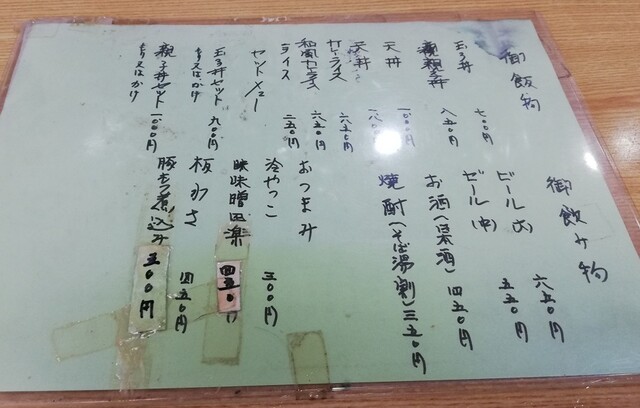 御飯物
玉子丼 七〇〇円
親子丼 八五〇円
天丼 一〇〇〇円
天丼
カレーライス 六五〇円
和風カレー 六五〇円
ライス 二五〇円
セットメニュー
玉子丼セット 九〇〇円
もり又はかけ
親子丼セット 一〇〇〇円
もり又はかけ
御飲み物
ビール(大) 六五〇円
ビール(中) 五五〇円
お酒(日本酒) 四五〇円
焼酎(そば湯割) 三五〇円
おつまみ
冷やっこ 三〇〇円
味噌田楽 四五〇円
板わさ 四五〇円
豚もつ煮込み 五〇〇円